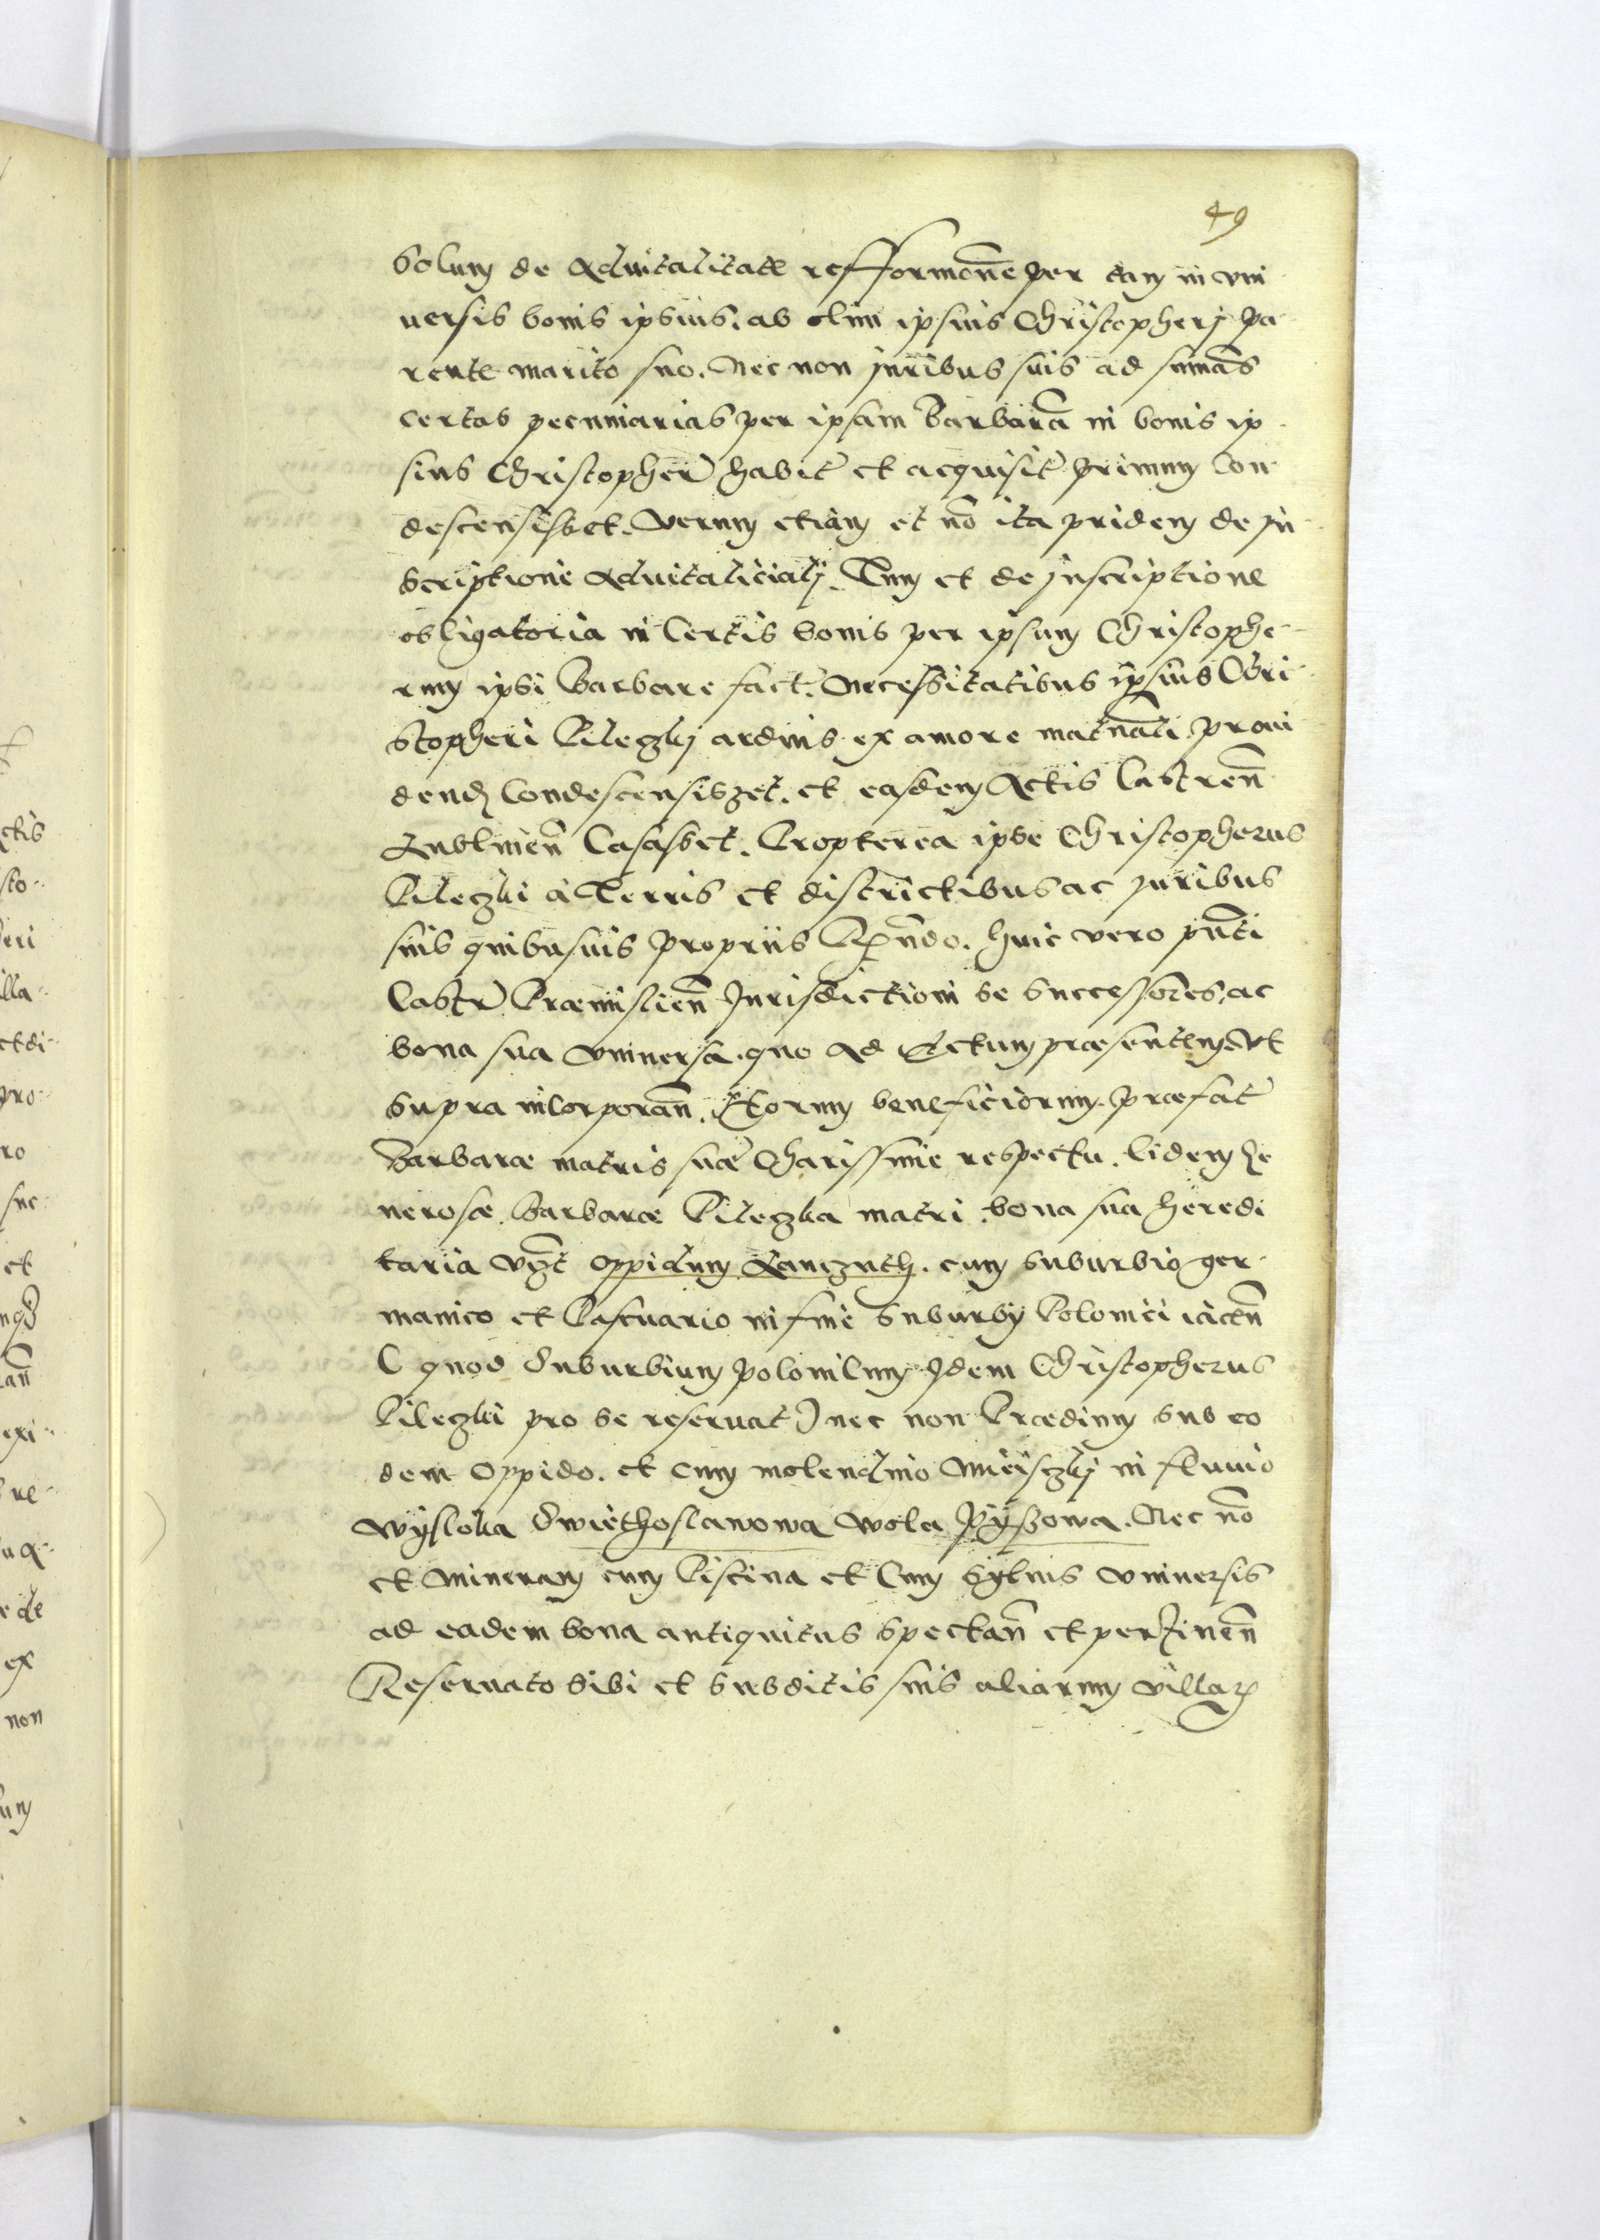 49
Solum de Aduitalitate refformone per eam in vni
uersis bonis ipsius. ab olim ipsius Christopherj pa
rente marito suo. Nec non juribus suis ad sumas
certas pecuniarias per ipsam Barbara in bonis ip
sius Christopheri habit et acquisit primum Con
descensisset. Verum etiam et no ita pridem de In
scriptione Aduitalicialj. Tum et de jnscriptione
obligatoria in Certis bonis per ipsum Christophe
rum ipsi Barbare fact. Necessitatibus ipsius Chri
stopheri Pileczkj arduis ex amore matnali proui
dend Condescensisset. et easdem Actis Castren
Lublinen Casasset. Propterea ipse Christopherus
Pileczki a Terris et districtibus ac juribus
suis quibusuis propriis Rndo. huic vero pnti
Castr Præmislien Jurisdictioni se successores, ac
bona sua vniuersa. quo ad Actum præsentem vt
supra incorporan. Horum beneficiorum. præfat
Barbaræ matris suæ Charissime respectu. Eidem Ge
nerosæ Barbaræ Pileczka matri. bona sua heredi
taria vzt oppidum Lanczuth. cum suburbio ger
manico et Pascuario in fine suburbÿ Polonici iacen
( quod Suburbium polonicum Idem Christopherus
Pileczki pro se reseruat ) nec non Prædium sub eo
dem oppido. et cum molendino Mieisczkj in fluuio
Wÿsloka Swiethoslawowa Wola Pÿssowa. Nec no
et Mineram cum Piscina et Cum Syluis vniuersis
ad eadem bona antiquitus spectan et pertinen
Reseruato sibi et subditis suis aliarum villar